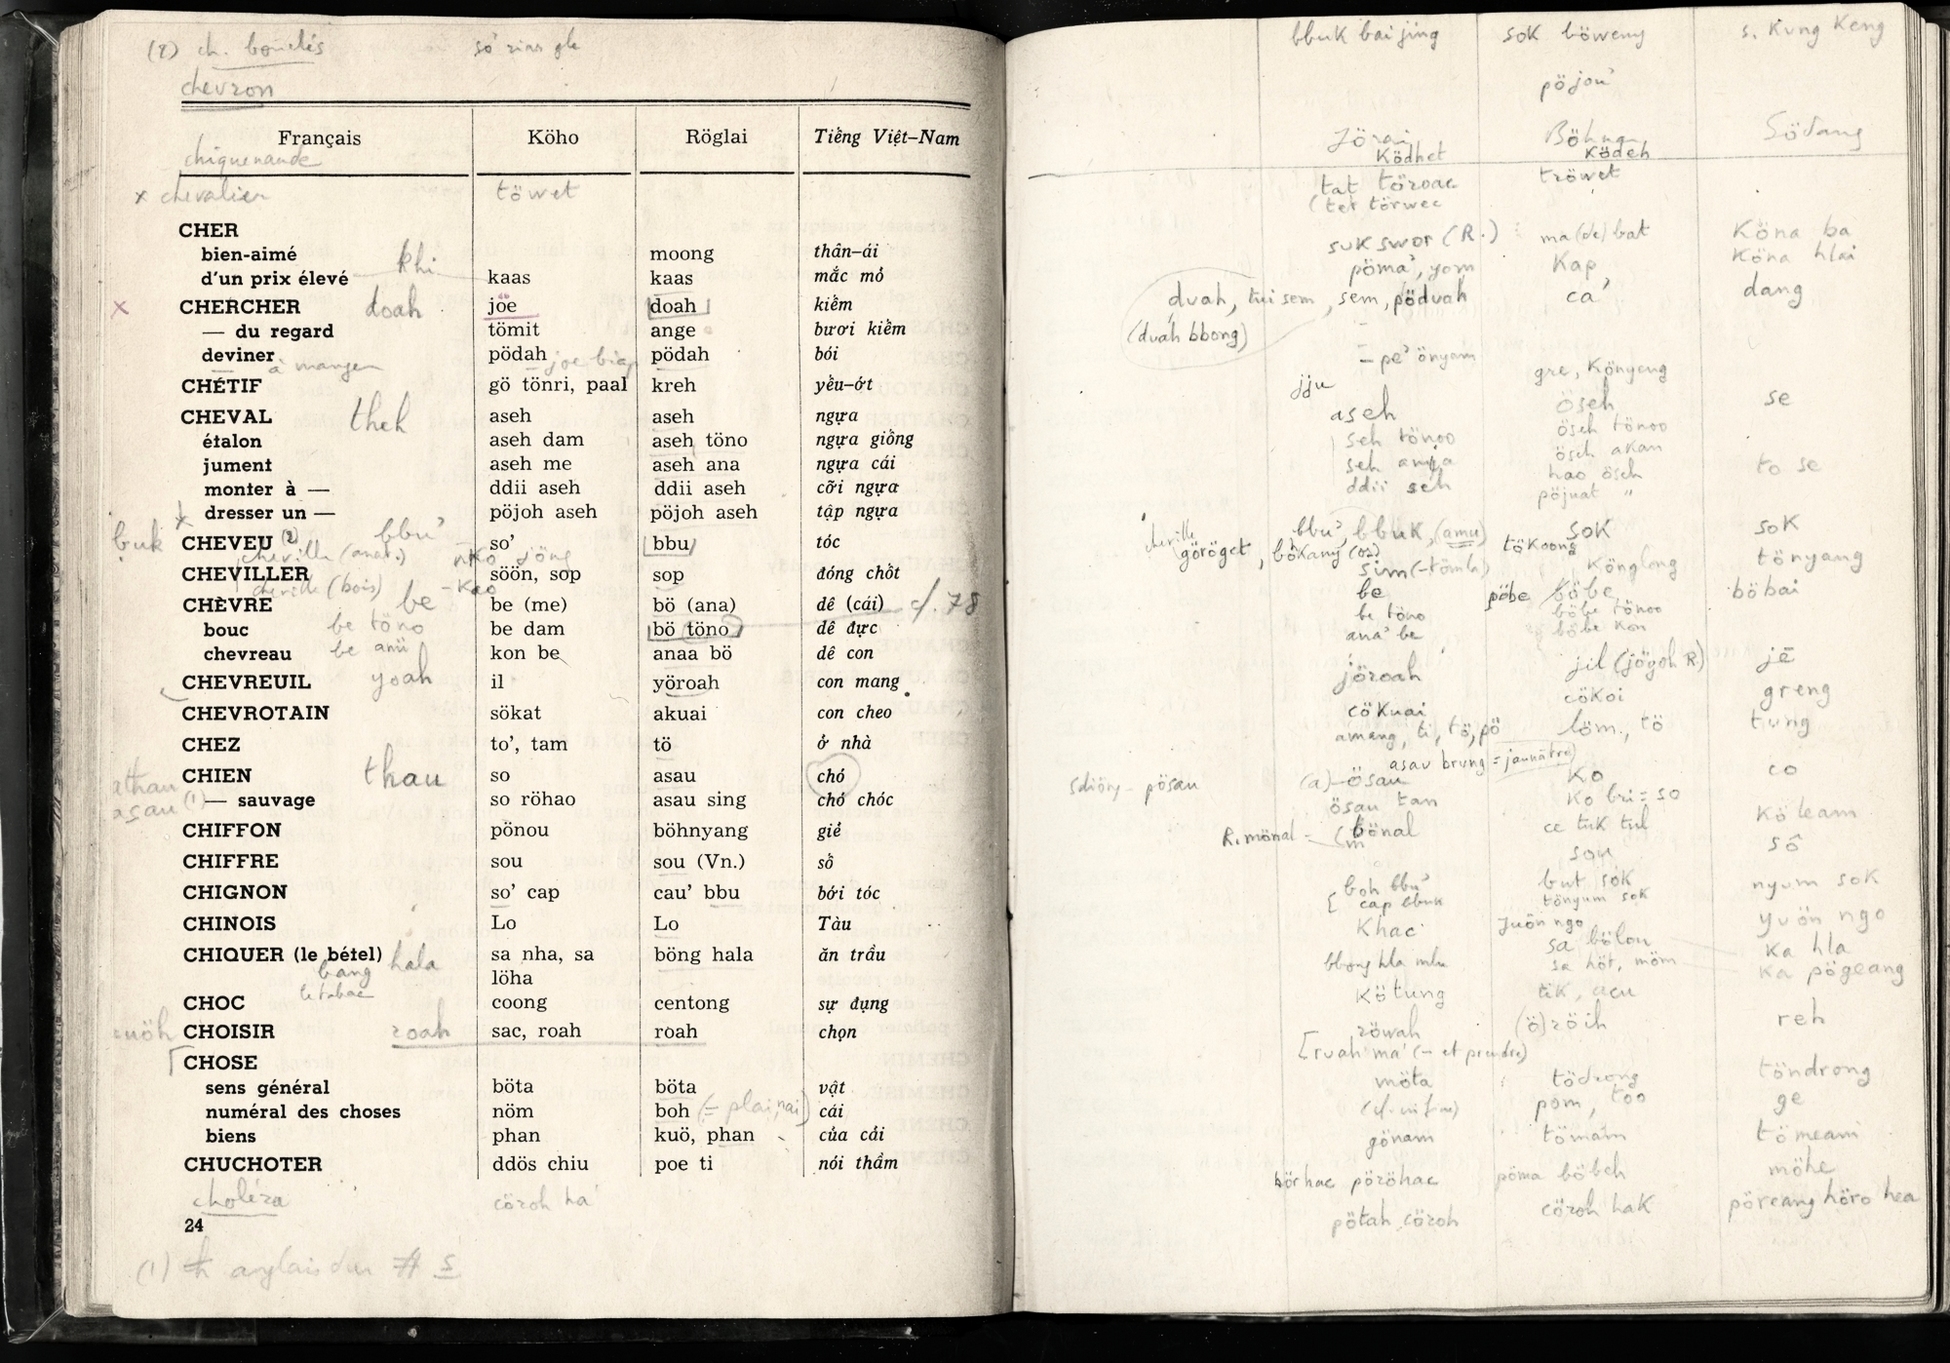 (2) ch. bouclés
chevron
Français Köho Röglai Tiếng Việt–Nam
chiquenaude
x chevalier töwet
CHER
bien-aimé moong thân–ái
d'un prix élevé khi kaas kaas mắc mỏ
x CHERCHER doah joe doah kiếm
— du regard tömit ange bươi kiếm
deviner pödah pödah bói
à manger
CHÉTIF gö tönri, paal kreh yếu–ớt
CHEVAL theh aseh aseh ngựa
étalon aseh dam aseh töno ngựa giống
jument aseh me aseh ana ngựa cái
monter à — ddii aseh ddii aseh cỡi ngựa
dresser un — pöjoh aseh pöjoh aseh tập ngựa
buk CHEVEU (2) bbu' so' bbu tóc
cheville (anat.) jöng
CHEVILLER söön, sop sop đóng chốt
cheville (bois)
CHÈVRE be be (me) bö (ana) dê (cái) cf. 78
bouc be töno be dam bö töno dê đực
chevreau kon be anaa bö dê con
CHEVREUIL yoah il yöroah con mang
CHEVROTAIN sökat akuai con cheo
CHEZ to', tam tö ở nhà
CHIEN thau so asau chó
athau
asau (1) — sauvage so röhao asau sing chó chóc
CHIFFON pönou böhnyang giẻ
CHIFFRE sou sou (Vn.) số
CHIGNON so' cap cau' bbu bới tóc
CHINOIS Lo Lo Tàu
CHIQUER (le bétel) hala sa nha, sa böng hala ăn trầu
löha
bang
le tabac
CHOC coong centong sự đụng
CHOISIR roah sac, roah roah chọn
CHOSE
sens général böta böta vật
numéral des choses nöm boh cái
biens phan kuö, phan của cải
CHUCHOTER ddös chiu poe ti nói thầm
choléra cöroh ha'
24
(1) th anglais dur # s
bbuk baijing sok böweng s. kung keng
pöjou'
Jörai Böhnar Södang
Ködhet Ködeh
tat töroac tröwet
(tet törwec
suk swor (R.) ma (de) bat Köna ba
pöma', yom Kap Köna hlai
duah, tui sem, sem, pöduah ca' dang
(duah bbong)
– pe' önyam
jju gre, Könyeng
aseh öseh se
seh tönoo öseh tönoo
öseh akan
ddii seh hao öseh to se
pöjuat "
cheville bbu', bbuk, (amu) sok sok
göröget, bökang (os) tökoong tönyang
Könglong
be pöbe böbe böbai
be töno böbe tönoo
ana' be böbe kon
jöroah jil (jögoh R.) jē
cökuai cökoi greng
amang, ti, tö, pö löm., tö tung
asau brung = jaunâtre
sdiöng – pösau (a)–ösau Ko co
ösau tan Ko bri = so
R. mönal – bönal cc tuk tul Köleam
sou số
boh bbu' but sok nyum sok
cap bbuk tönyum sok
Khac juön ngo yuön ngo
sa bölou ka hla
bbong hla mlu sa höt, möm ka pögeang
Kötung tik, acu
röwah (ö)röih reh
[ruah ma' (– et prendre)
möta tödrong töndrong
pom, töo ge
gönam tömam tömeam
börhac pöröhac pöma böbeh möhe
pötah cöroh cöroh hak pöreang höro hea